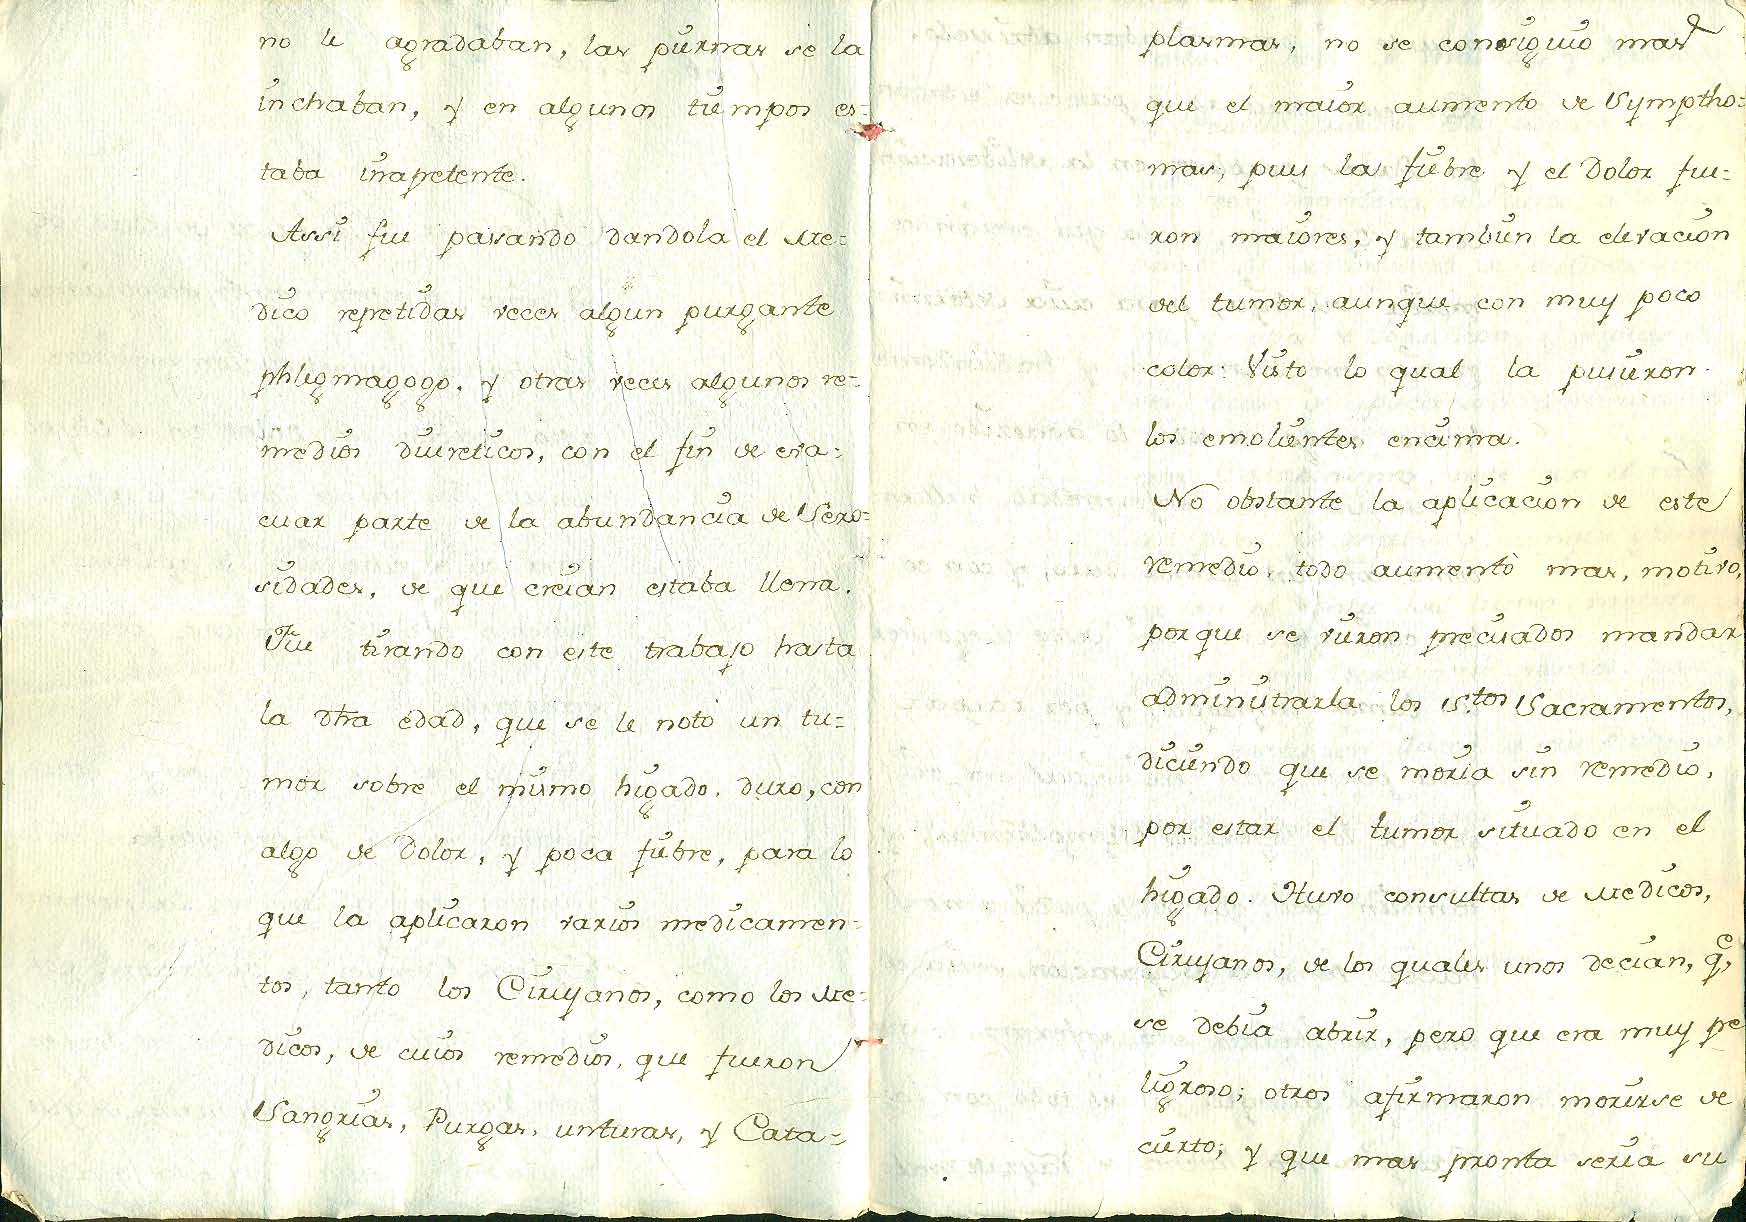 no le agradaban, las piernas se la
inchaban, y en algunos tiempos es=
taba inapetente.
Assi fue pasando dandola el Me=
dico repetidas veces algun purgante
phlegmagogo, y otras veces algunos re=
medios diureticos, con el fin de eva=
cuar parte de la abundancia de Sero=
sidades, de que creian estaba llena.
Fue tirando con este trabajo hasta
la dtra edad, que se le notò un tu=
mor sobre el mismo higado, duro, con
algo de Dolor, y poca fiebre, para lo
que la aplicaron varios medicamen=
tos, tanto los Cirujanos, como los Me=
dicos, de cuios remedios, que fueron
Sangrias, Purgas, unturas, y Cata=
plasmas, no se consiguio mas
que el maior aumento de Symptho=
mas, pues la fiebre y el Dolor fue=
ron maiores, y tambien la elevacion
del tumor, aunque con muy poco
color: Visto lo qual la pusieron
los emolientes encima.
No obstante la aplicacion de este
remedio, todo aumentò mas, motivo,
porque se vieron precisados mandar
administrarla los S.tos Sacramentos,
diciendo que se moria sin remedio,
por estar el tumor situado en el
higado. Huvo consultas de Medicos,
Cirujanos, de los quales unos decian, q.e
se debia abrir, pero que era muy pe
ligroso; otros afirmaron morirse de
cierto; y que mas pronta seria su